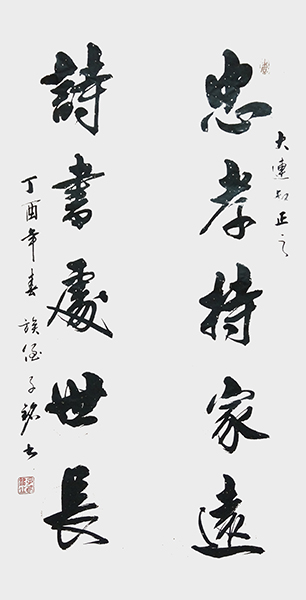 大連叔正之
忠孝持家遠
詩書處世長
丁酉年春族侄子銘書